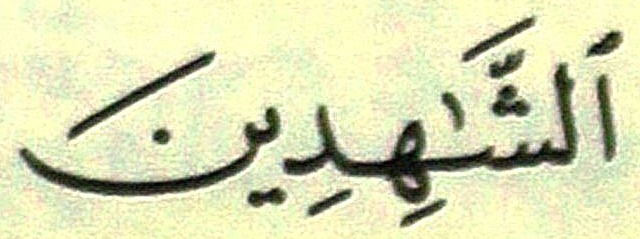 ٱلشَّٰهِدِينَ